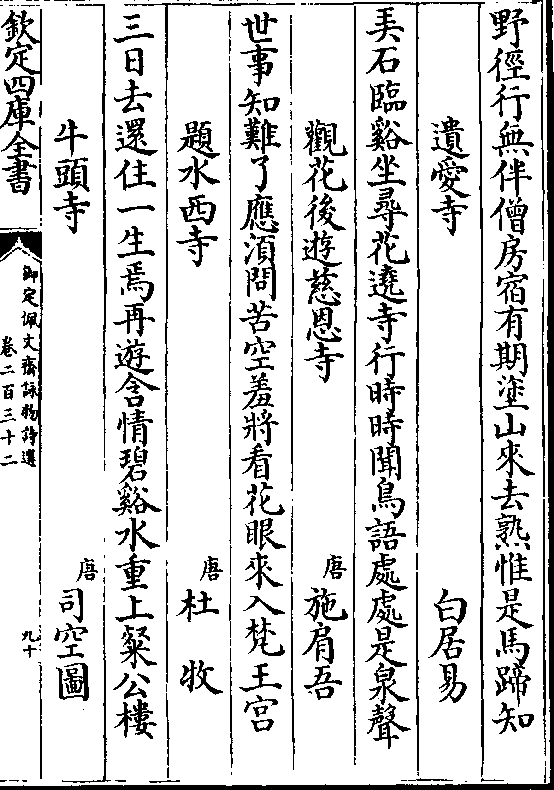 野徑行無伴僧房宿有期塗山來去熟惟是馬蹄知
遺愛寺 白居易
弄石臨谿坐尋花遶寺行時時聞鳥語處處是泉聲
觀花後遊慈恩寺 唐 施肩吾
世事知難了應須問苦空羞將看花眼來入梵王宮
題水西寺 唐 杜牧
三日去還住一生焉再遊含情碧谿水重上粲公樓
牛頭寺 唐 司空圖
欽定四庫全書
御定佩文齋詠物詩選
卷二百三十二
九十